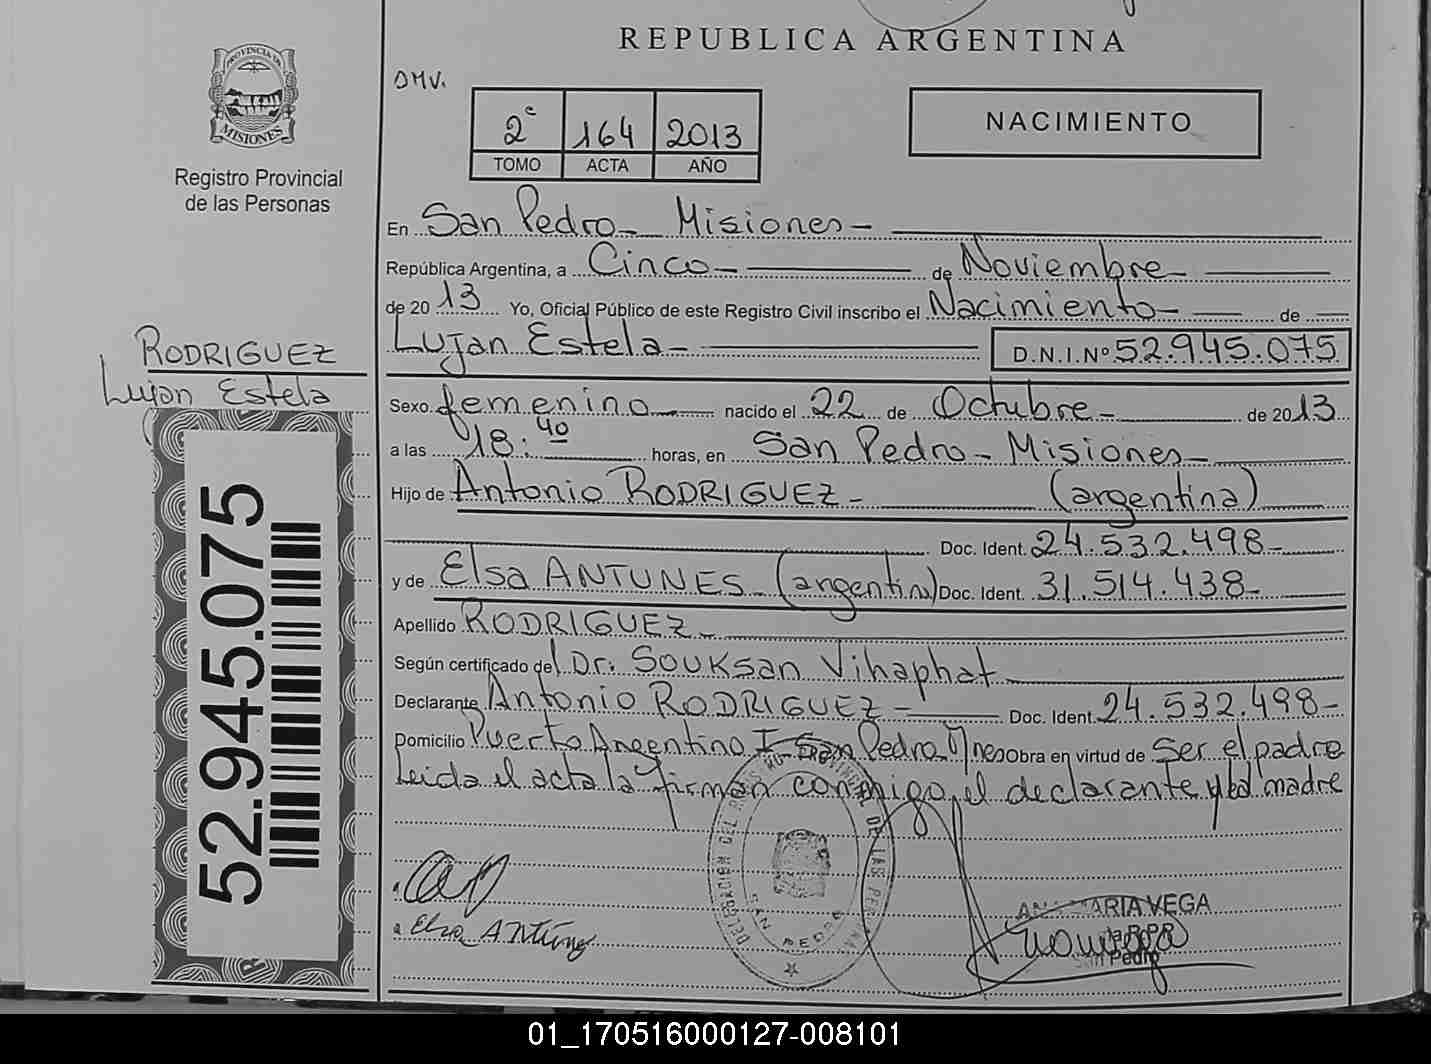 REPUBLICA ARGENTINA
PROVINCIA DE
MISIONES
Registro Provincial
de las Personas
DMV.
2º 164 2013
TOMO ACTA AÑO
NACIMIENTO
En San Pedro - Misiones -
República Argentina, a Cinco - de Noviembre -
de 2013 Yo, Oficial Público de este Registro Civil inscribo el Nacimiento - de
Lujan Estela - D.N.I.Nº 52.945.075
RODRIGUEZ
Lujan Estela
Sexo femenino nacido el 22 de Octubre - de 2013
a las 18:40 horas, en San Pedro - Misiones -
Hijo de Antonio RODRIGUEZ - (argentina)
Doc. Ident. 24.532.498 -
y de Elsa ANTUNES - (argentina) Doc. Ident. 31.514.438 -
Apellido RODRIGUEZ -
Según certificado del Dr. Souksan Vihaphat
Declarante Antonio RODRIGUEZ - Doc. Ident. 24.532.498 -
Domicilio Puerto Argentino I - San Pedro Mnes Obra en virtud de Ser el padre
Leida el acta la firman conmigo, el declarante y la madre
52.945.075
DELEGACION DEL REGISTRO PROVINCIAL DE LAS PERSONAS
SAN PEDRO
Elsa Antunes
ANA MARIA VEGA
San Pedro
01_170516000127-008101